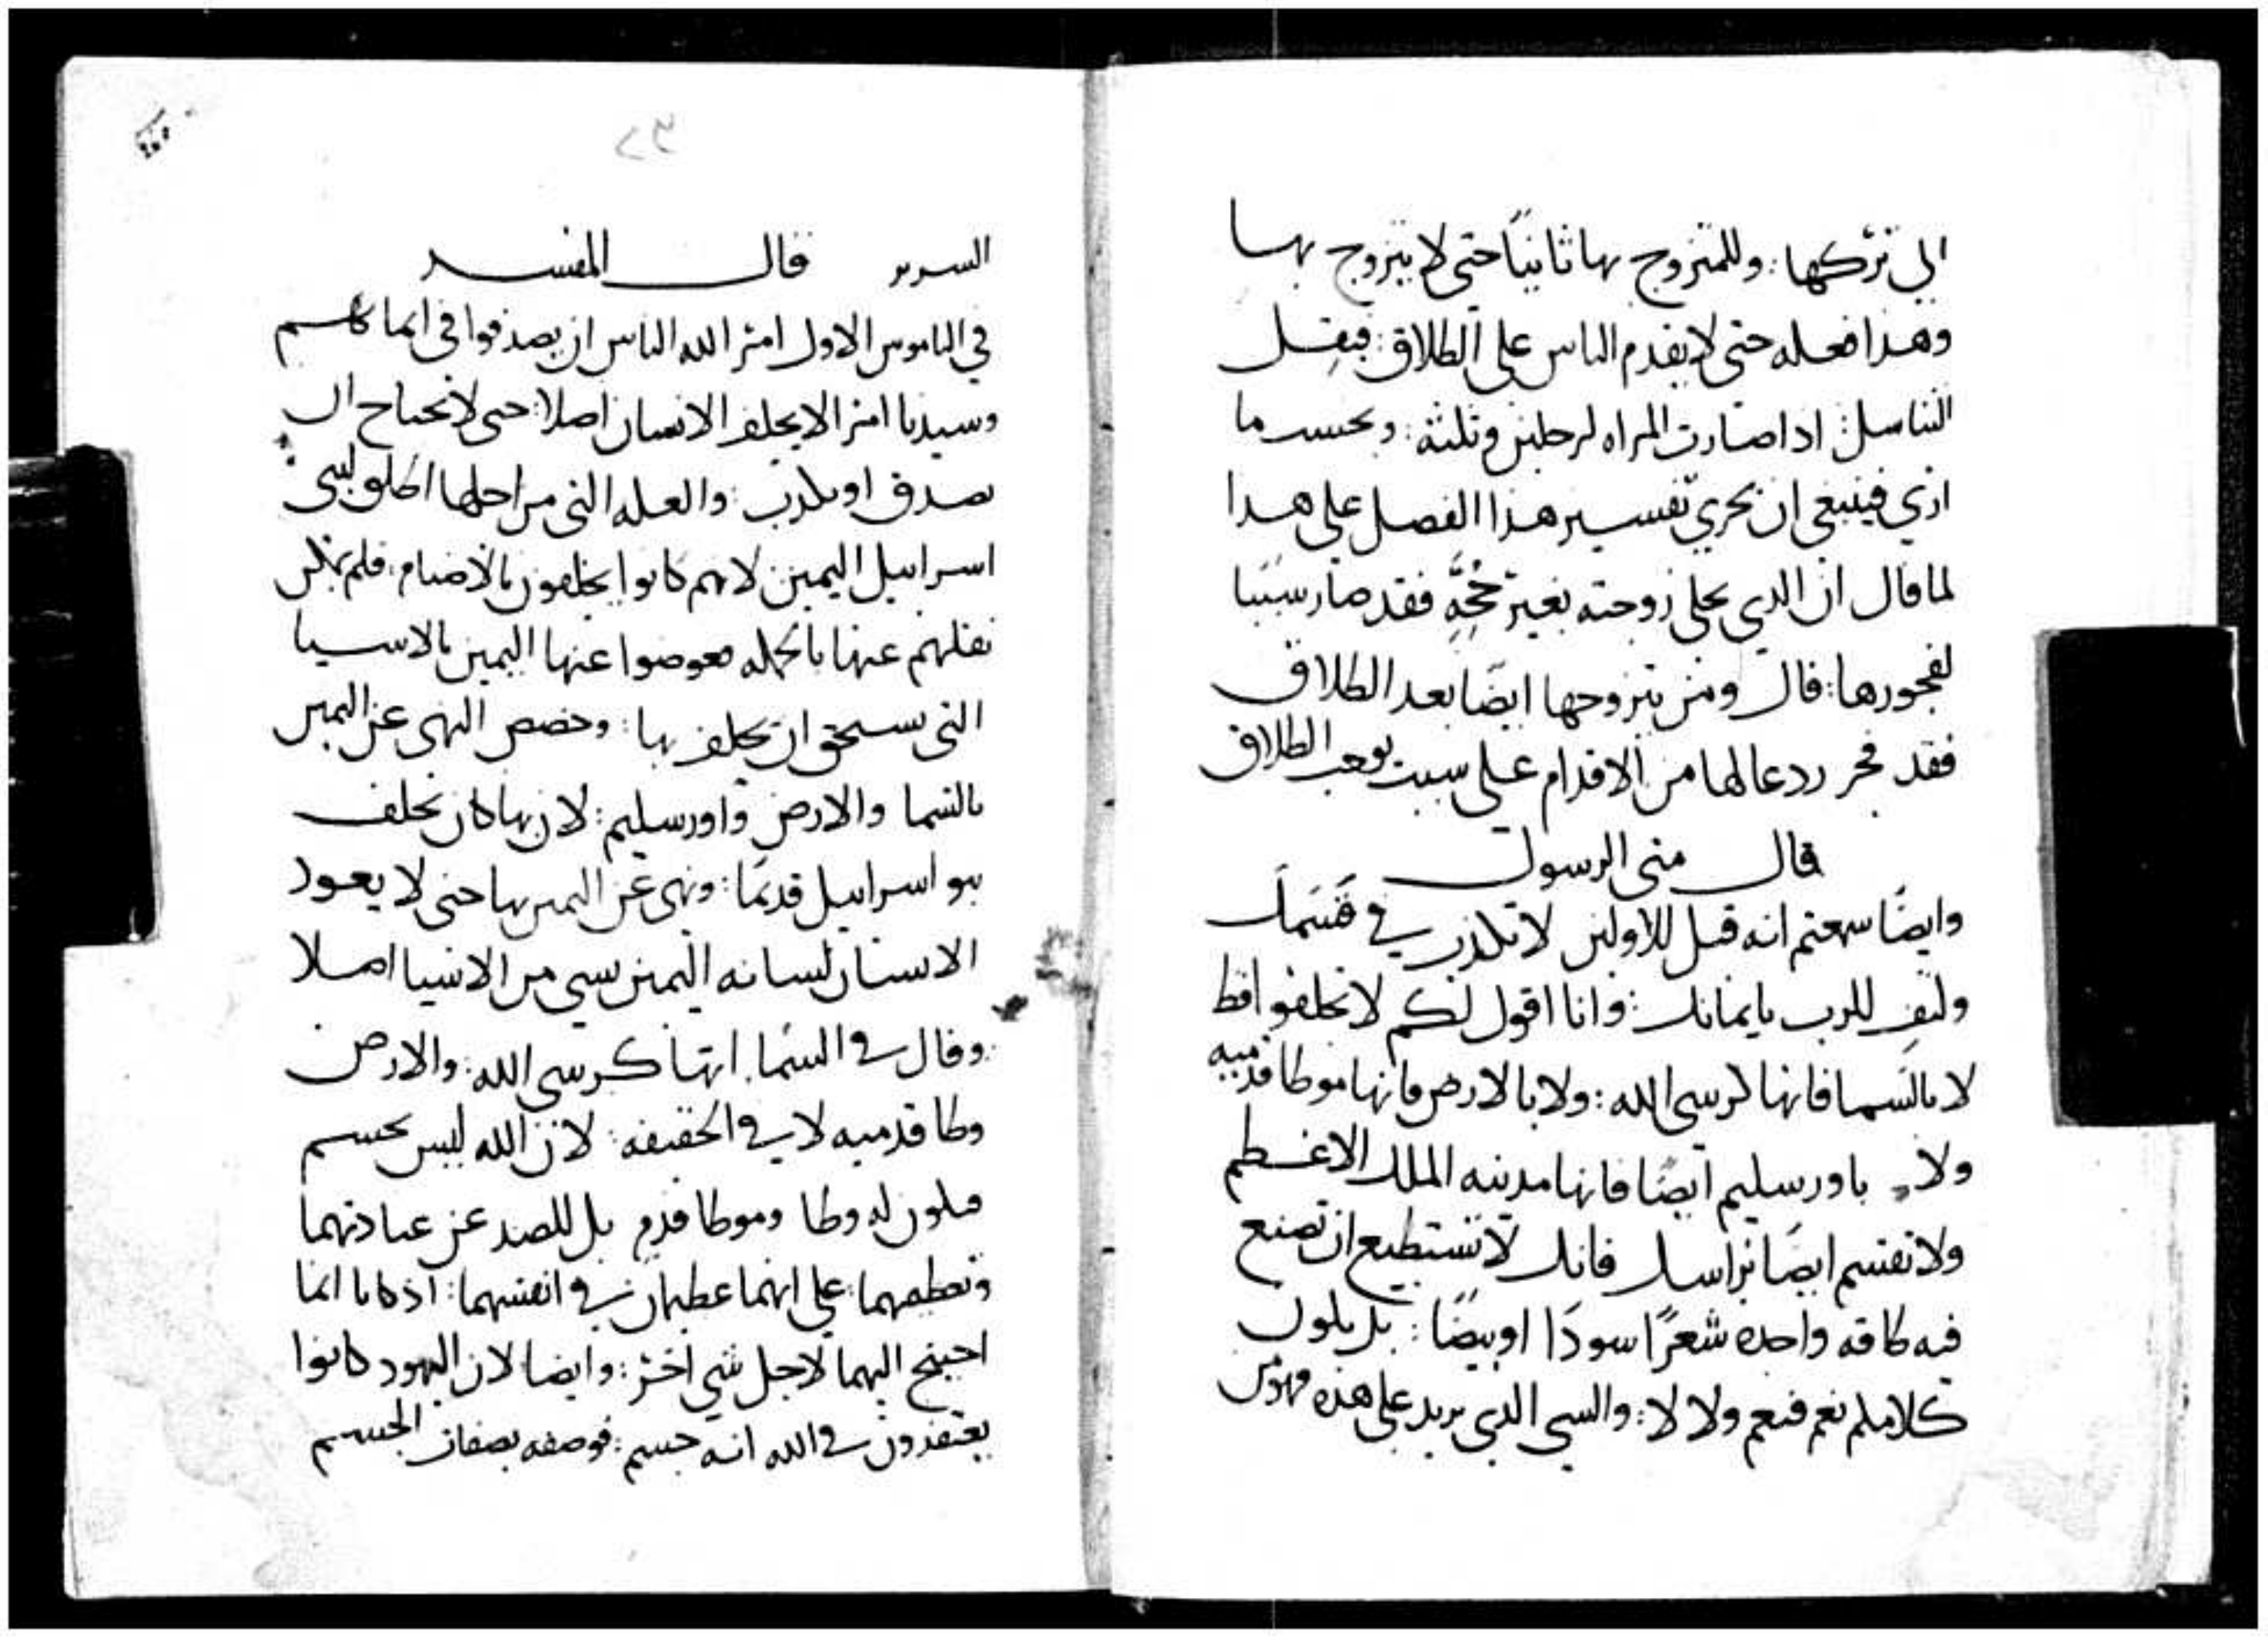 الي تركها: وللمتزوج بها ثانيًا حتى لا يتزوج بها
وهذا فعله حتى لا يقدم الناس على الطلاق: فيقل
التناسل: اذا صارت المراه لرجلين وثلثة: وبحسب ما
اري فينبغي ان نجري تفسير هذا الفصل على هذا
لما قال ان الذي يخلي زوجته بغير حُجَّهٍ فقد صار سَبَبًا
لفجورها: قال ومن يتزوجها ايضًا بعد الطلاق
فقد فجر ردعا لها من الاقدام على سبب يوجب الطلاق
قال متى الرسول
وايضًا سمعتم انه قيل للاولين لا تكذب في قسمك
ولتفِ للرب بايمانك: وانا اقول لكم لا تحلفوا قط
لا بالسَما فانها كرسي الله: ولا بالارض فانها موطا قدميه
ولا باورسليم ايضًا فانها مدينه الملك الاعظم
ولا تقسم ايضًا براسك فانك لا تستطيع ان تصنع
فيه طاقه واحده شعرًا سودَا او بيضًا: بل يكون
كلامكم نعم فنعم ولا لا: والسي الدي يريد على هذه فهو من
٢٣
السرير قال المفسر
في الناموس الاول امر الله الناس ان يصدقوا في ايمانهم
وسيدنا امر الا يحلف الانسان اصلا: حتى لا يحتاج ال
يصدق او يكذب: والعله التي من اجلها اطلق لبني
اسراييل اليمين لانهم كانوا يحلفون بالاصنام: فلم يمكن
نقلهم عنها بالجمله فعوضوا عنها اليمين بالاسيا
التي يستحق ان يحلف بها: وخصص النهي عن اليمين
بالسما والارض واورسليم: لان بها كان يحلف
بنو اسراييل قديمًا: ونهى عن اليمين بها حتى لا يعود
الانسان لسانه اليمين بسي من الاشيا اصلا
وقال في السما انها كرسي الله: والارض
وطا قدميه لا في الحقيقه: لان الله ليس بجسم
فيكون له وطا وموطا قدم بل للصد عن عبادتهما
وتعظيمهما: على انهما عظيمان في انفسهما: اذ كانا انما
احتيج اليهما لاجل شي اخر: وايضا لان اليهود كانوا
يعتقدون في الله انه جسم: فوصفه بصفات الجسم